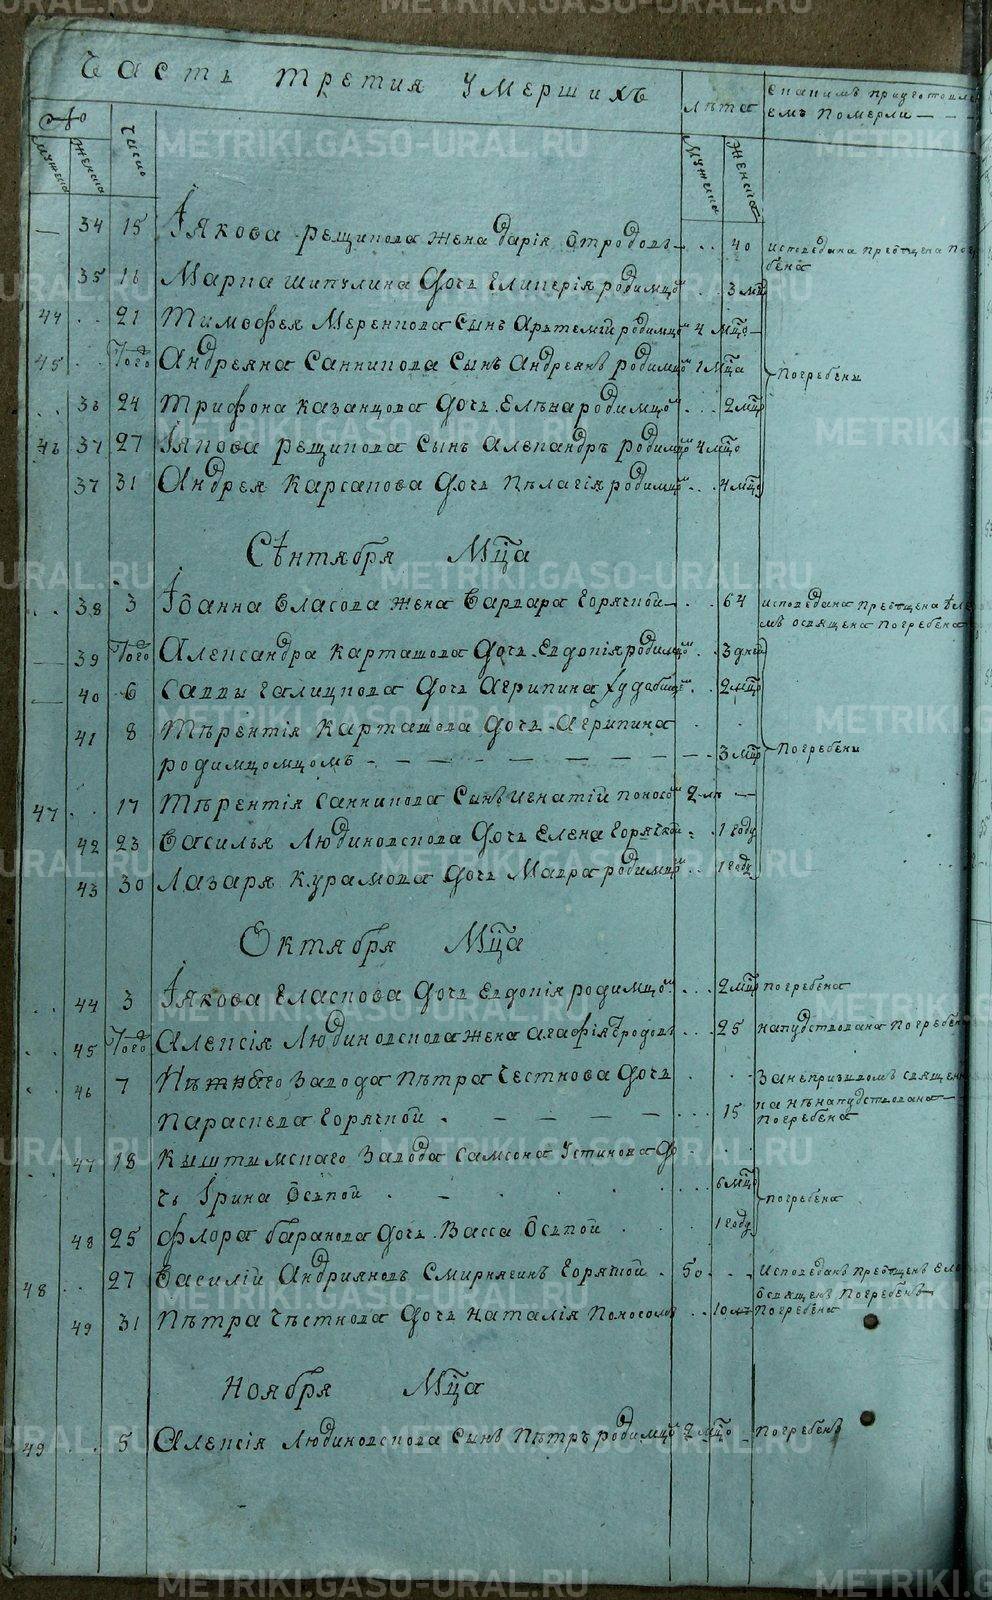 METRIKI.GASO-URAL.RU
Часть третия умершихъ
Лѣта
съ какимъ приуготовле
емъ померли — — —
Мужеска
Женска
Число
Мужеска
Женска
— 34 15 Іякова Рещикова жена Дарія отродовъ — . . 40 исповедана преобщена погр
бена
35 16 Марка Шипулина дочь Еликерія родимцо . . 3 мц
44 . . 21 Тимоѳея Меренкова сынъ Артемій родимцо 4 мцо —
45 . . Того Андреяна Санникова сынъ Андреянъ родимцо 1 мца
Погребены
. . 36 24 Трифона Казанцова дочь Елѣна родимцо . . 2 мцо
46 37 27 Іякова Рещикова сынъ Алеѯандръ родимцо 4 мцо
37 31 Андрея Карсакова дочь Пѣлагія родимцо . . 4 мцо
Сентября Мца
. . 38 3 Іоанна Власова жена Варвара горячкой — . . 64 исповедана преобщена еле
мъ освящена погребена
— 39 Того Александра Карташова дочь Евдокія родимцо . 3 дней
— 40 6 Саввы Галицкова дочь Агрипина худобищ . . 2 мцо
41 8 Терентія Карташова дочь Агрипина . .
родимцомцомъ — — — — — — — 3 мцо
Погребены
47 . . 17 Терентія Санникова сынъ Игнатій поносо 2 лѣ —
42 23 Василья Людиновскова дочь Елена горячкой . 1 году
43 30 Лазаря Курамова дочь Мавра родимцо . . 1 году
Октября Мца
. . 44 3 Іякова Еласкова дочь Евдокія родимцо . . . 2 мцо погребена
. . 45 Того Алексія Людиновскова жена Агафія родовъ . . . 25 напудствована погребена
. . 46 7 завода Петра Честнова дочь . . . За непризывомъ священ
Параскева горячкой . — — — — . . . 15 ка не напудствована —
погребена
. . 47 18 Кыштымскаго завода Самсона Устинова до
чь Ірина Оспой . — . . . . . 6 мцо
погребена
48 25 Флора Баранова дочь Васса Оспой . . . 1 году
48 . . 27 Василій Андрияновъ Смирнягинъ горячкой . 50 . . . Исповеданъ преобщенъ еле
освященъ погребенъ
49 31 Петра Честнова дочь Наталія поносомъ . . 10 лѣ погребена
Ноября Мца
49 . . 5 Алексія Людиновскова сынъ Петръ родимцо 2 мцо — погребенъ